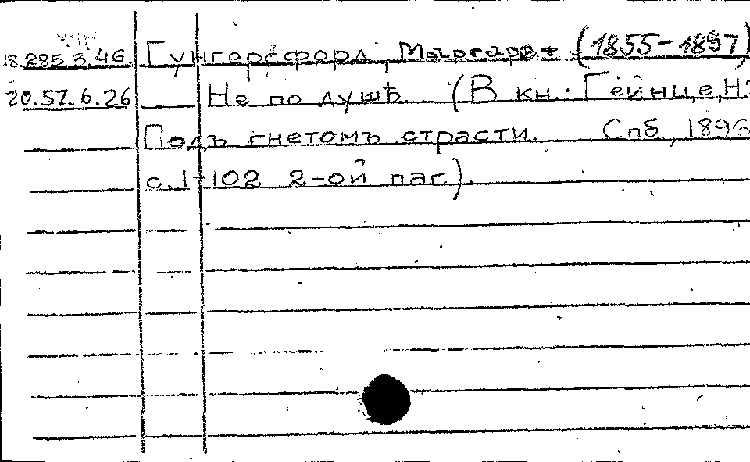 18.225.3.46 Гунгерфорд, Маргарет (1855-1897)
20.57.6.26 Не по душѣ. (В кн.: Гейнце, Н.
Подъ гнетомъ страсти. Спб, 1896
с. 1-102 2-ой паг.).